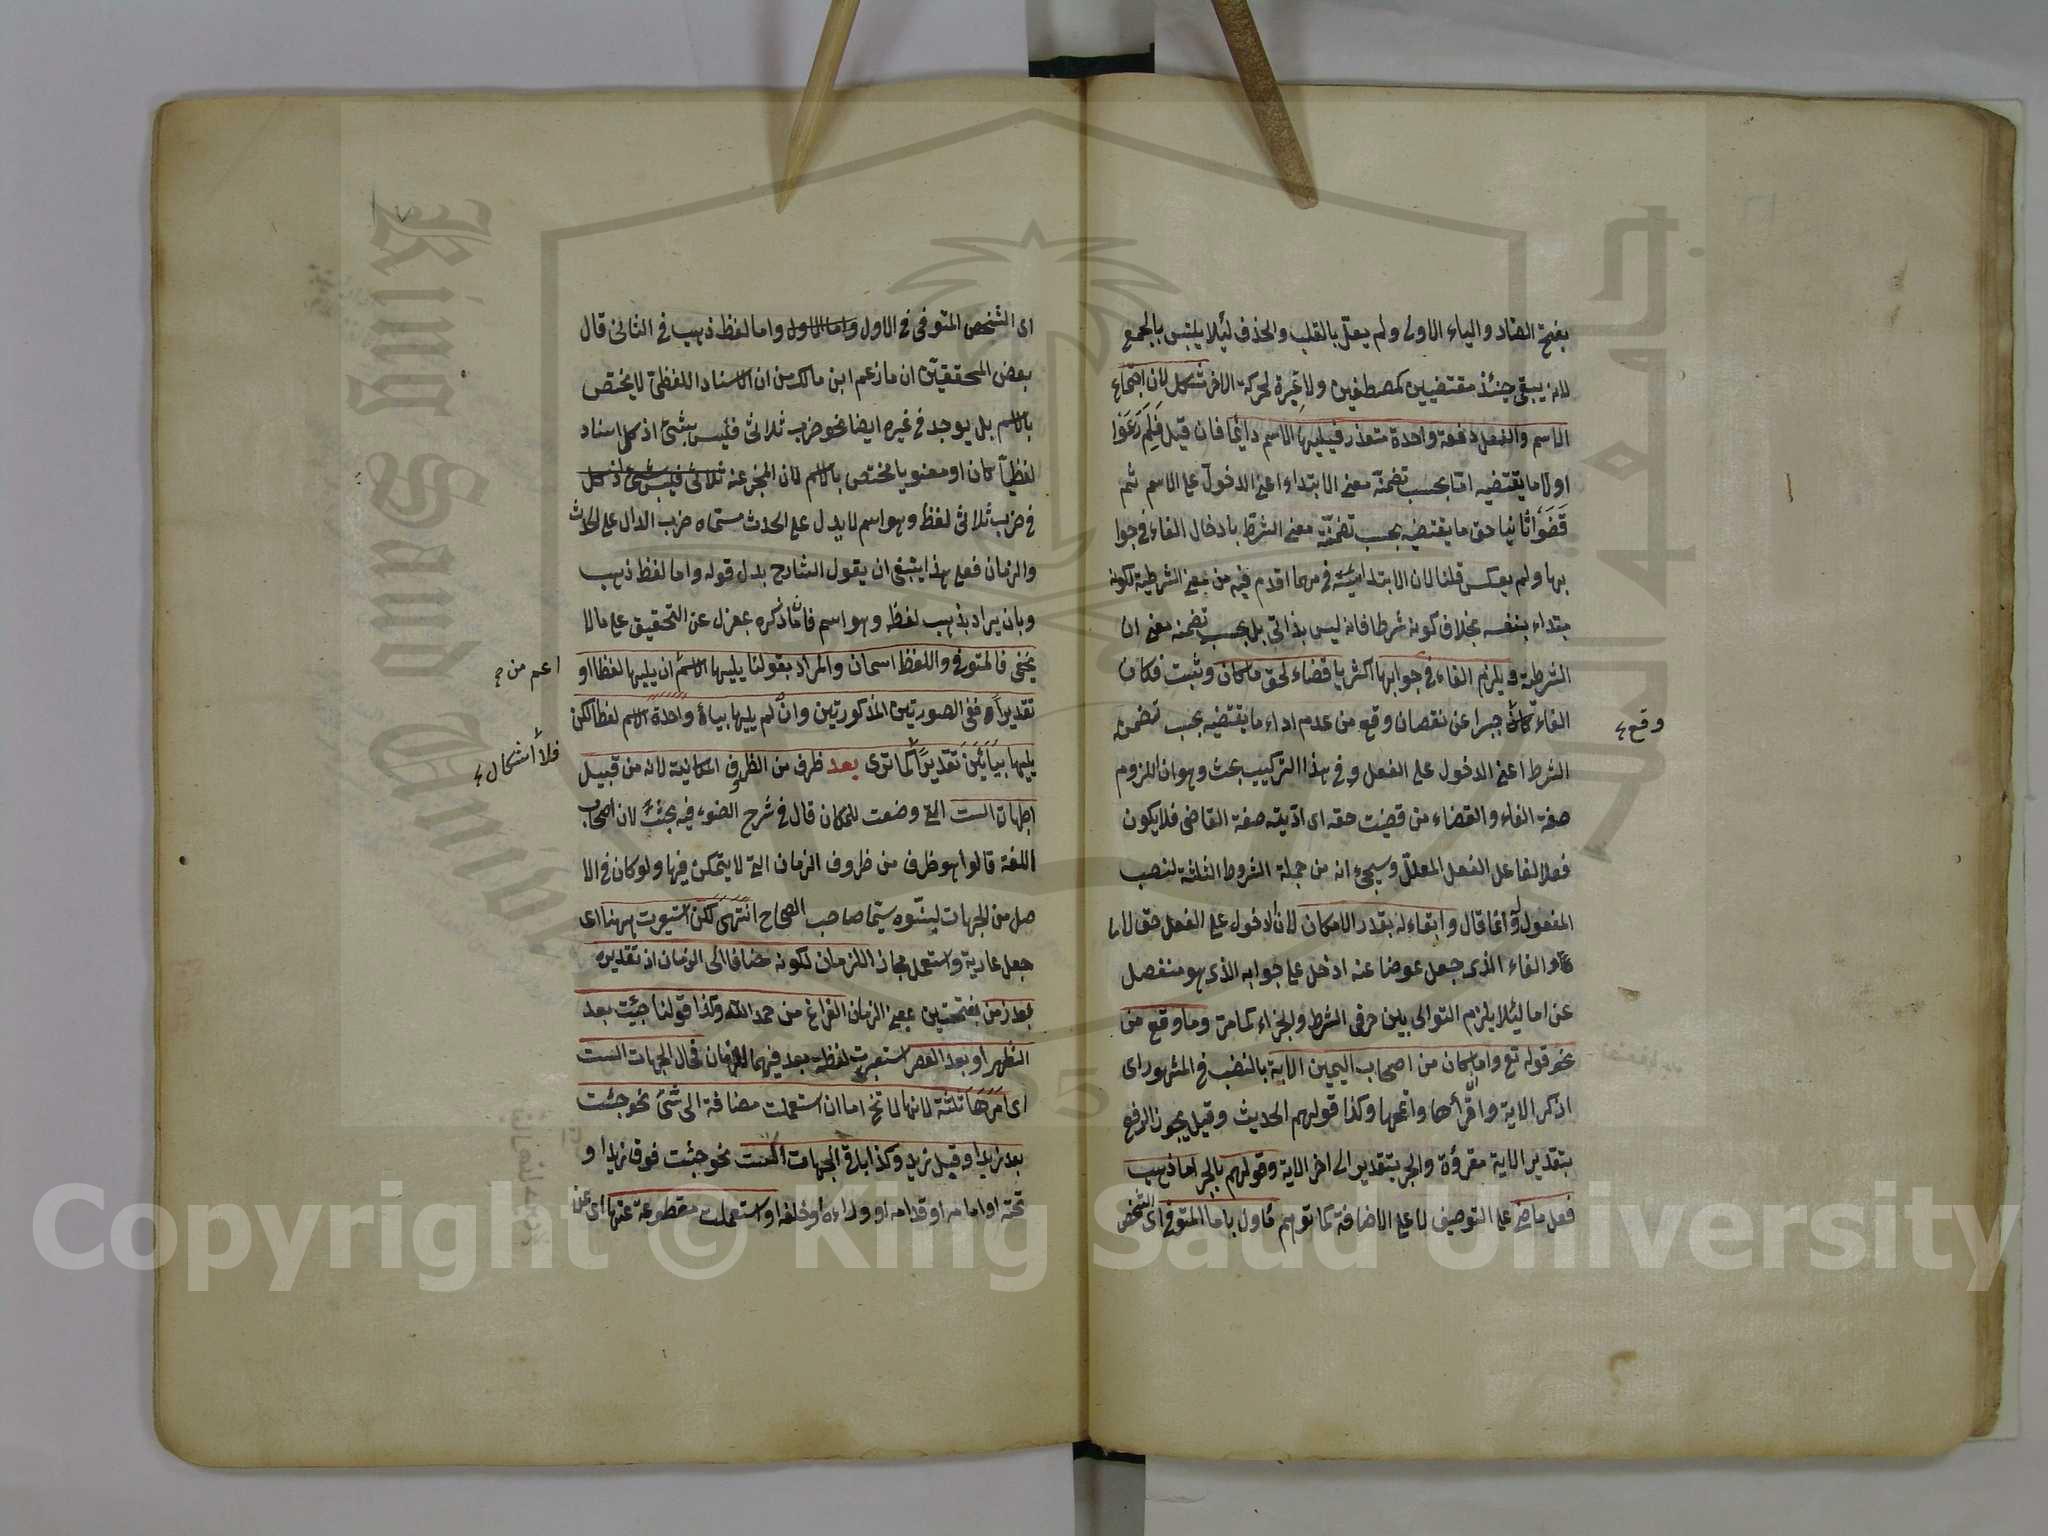 بفتح الضاد والياء الاولى ولم يعل بالقلب والحذف لئلا يلتبس بالجمع
لانه يبقى حينئذ مقتضيين كمصطفين ولا عبرة لحركة الاخر تشكل لان اجتماع
الاسم والفعل دفعة واحدة متعذر فيليها الاسم دائما فان قيل فلم رعوا
اولا ما يقتضيه اما بحسب تضمنه معنى الابتداء اعنى الدخول على الاسم ثم
قضوا ثانيا حق ما يقتضيه بحسب تضمنه معنى الشرط بادخال الفاء في جوا
بها ولم يعكس قلنا لان الابتدائية في مهما اقدم فيه من معنى الشرطية لكونه
مبتداء بنفسه بخلاف كونه شرطا فانه ليس بذاتى بل بحسب تضمنه معنى ان
الشرطية ويلزم الفاء في جوابها اكثريا قضاء لحق ما كان وثبت فكان
الفاء جبرا عن نقصان وقع من عدم اداء ما يقتضيه بحسب تضمنه
وقع
الشرط اعنى الدخول على الفعل وفى هذا التركيب بحث وهو ان اللزوم
صفة الفاء والقضاء من قضيت حقه اى اديته صفة القاضى فلا يكون
فعلا لفاعل الفعل المعلل وسيجئ انه من جملة الشروط الثلثة لنصب
المفعول له وانما قال وابقاء له بقدر الامكان لان الدخول على الفعل حق لاما
الفاء الذى جعل عوضا عنه ادخل على جوابه الذى هو منفصل
عن اما لئلا يلزم التوالى بين حرفى الشرط والجزاء كما مر وما وقع من
نحو قوله تع واما ان كان من اصحاب اليمين الاية بالنصب في المشهور اى
اذكر الاية واقرأها واتمها وكذا قولهم الحديث وقيل يجوز الرفع
بتقدير الاية مقروة والجر بتقدير الى اخر الاية وقولهم بالجر اما ذهب
فعل ماض على التوصيف لا على الاضافة كما توهم فاول باما المتوفى اى الشخص
اى الشخص المتوفى في الاول واما الاول واما لفظ ذهب في الثانى قال
بعض المحققين ان ما زعم ابن مالك من ان الاسناد اللفظى لا يختص
بالاسم بل يوجد في غيره ايضا نحو ضرب ثلاثى فليس بشئ اذ كل اسناد
لفظيا كان او معنويا مختص بالاسم لان المخبر عنه ثلاثى فليس بشئ اذ كل
في ضرب ثلاثى لفظ وهو اسم لا يدل على الحدث مسماه ضرب الدال على الحدث
والزمان فعلى هذا ينبغى ان يقول الشارح بدل قوله واما لفظ ذهب
وبان يراد بذهب لفظه وهو اسم فان ما ذكره بمعزل عن التحقيق على ما لا
يخفى فالمتوفى واللفظ اسمان والمراد بقولنا يليها الاسم ان يليها لفظا او
اعم من
تقديرا ففى الصورتين المذكورتين وان لم يليها بياء واحدة الاسم لفظا لكن
يليها بيائين تقديرا كما ترى بعد ظرف من الظروف المكانية لانه من قبيل
فلا اشكال
الجهات الست التى وضعت للمكان قال في شرح الضوء فيه بحث لان اصحاب
اللغة قالوا هو ظرف من ظروف الزمان التى لا يتمكن فيها ولو كان في الا
صل من الجهات لبينوه سيما صاحب الصحاح انتهى لكن استعيرت ههنا اى
جعل عارية واستعمل مجازا للزمان لكونه مضافا الى الزمان اذ تقديره
بعد زمن بفتحتين بمعنى الزمان الفراغ من حمد الله وكذا قولنا جيئت بعد
الظهر او بعد العصر استعيرت لفظة بعد فيهما للزمان فحال الجهات الست
اى امرها ثلثة لانها لا تخ اما ان استعملت مضافة الى شئ نحو جئت
بعد زيد او قبل زيد وكذا باقى الجهات الست نحو جئت فوق زيد او
تحته او امامه او قدامه او وراءه او خلفه او استعملت مقطوعة عنها اى عن
Copyright © King Saud University